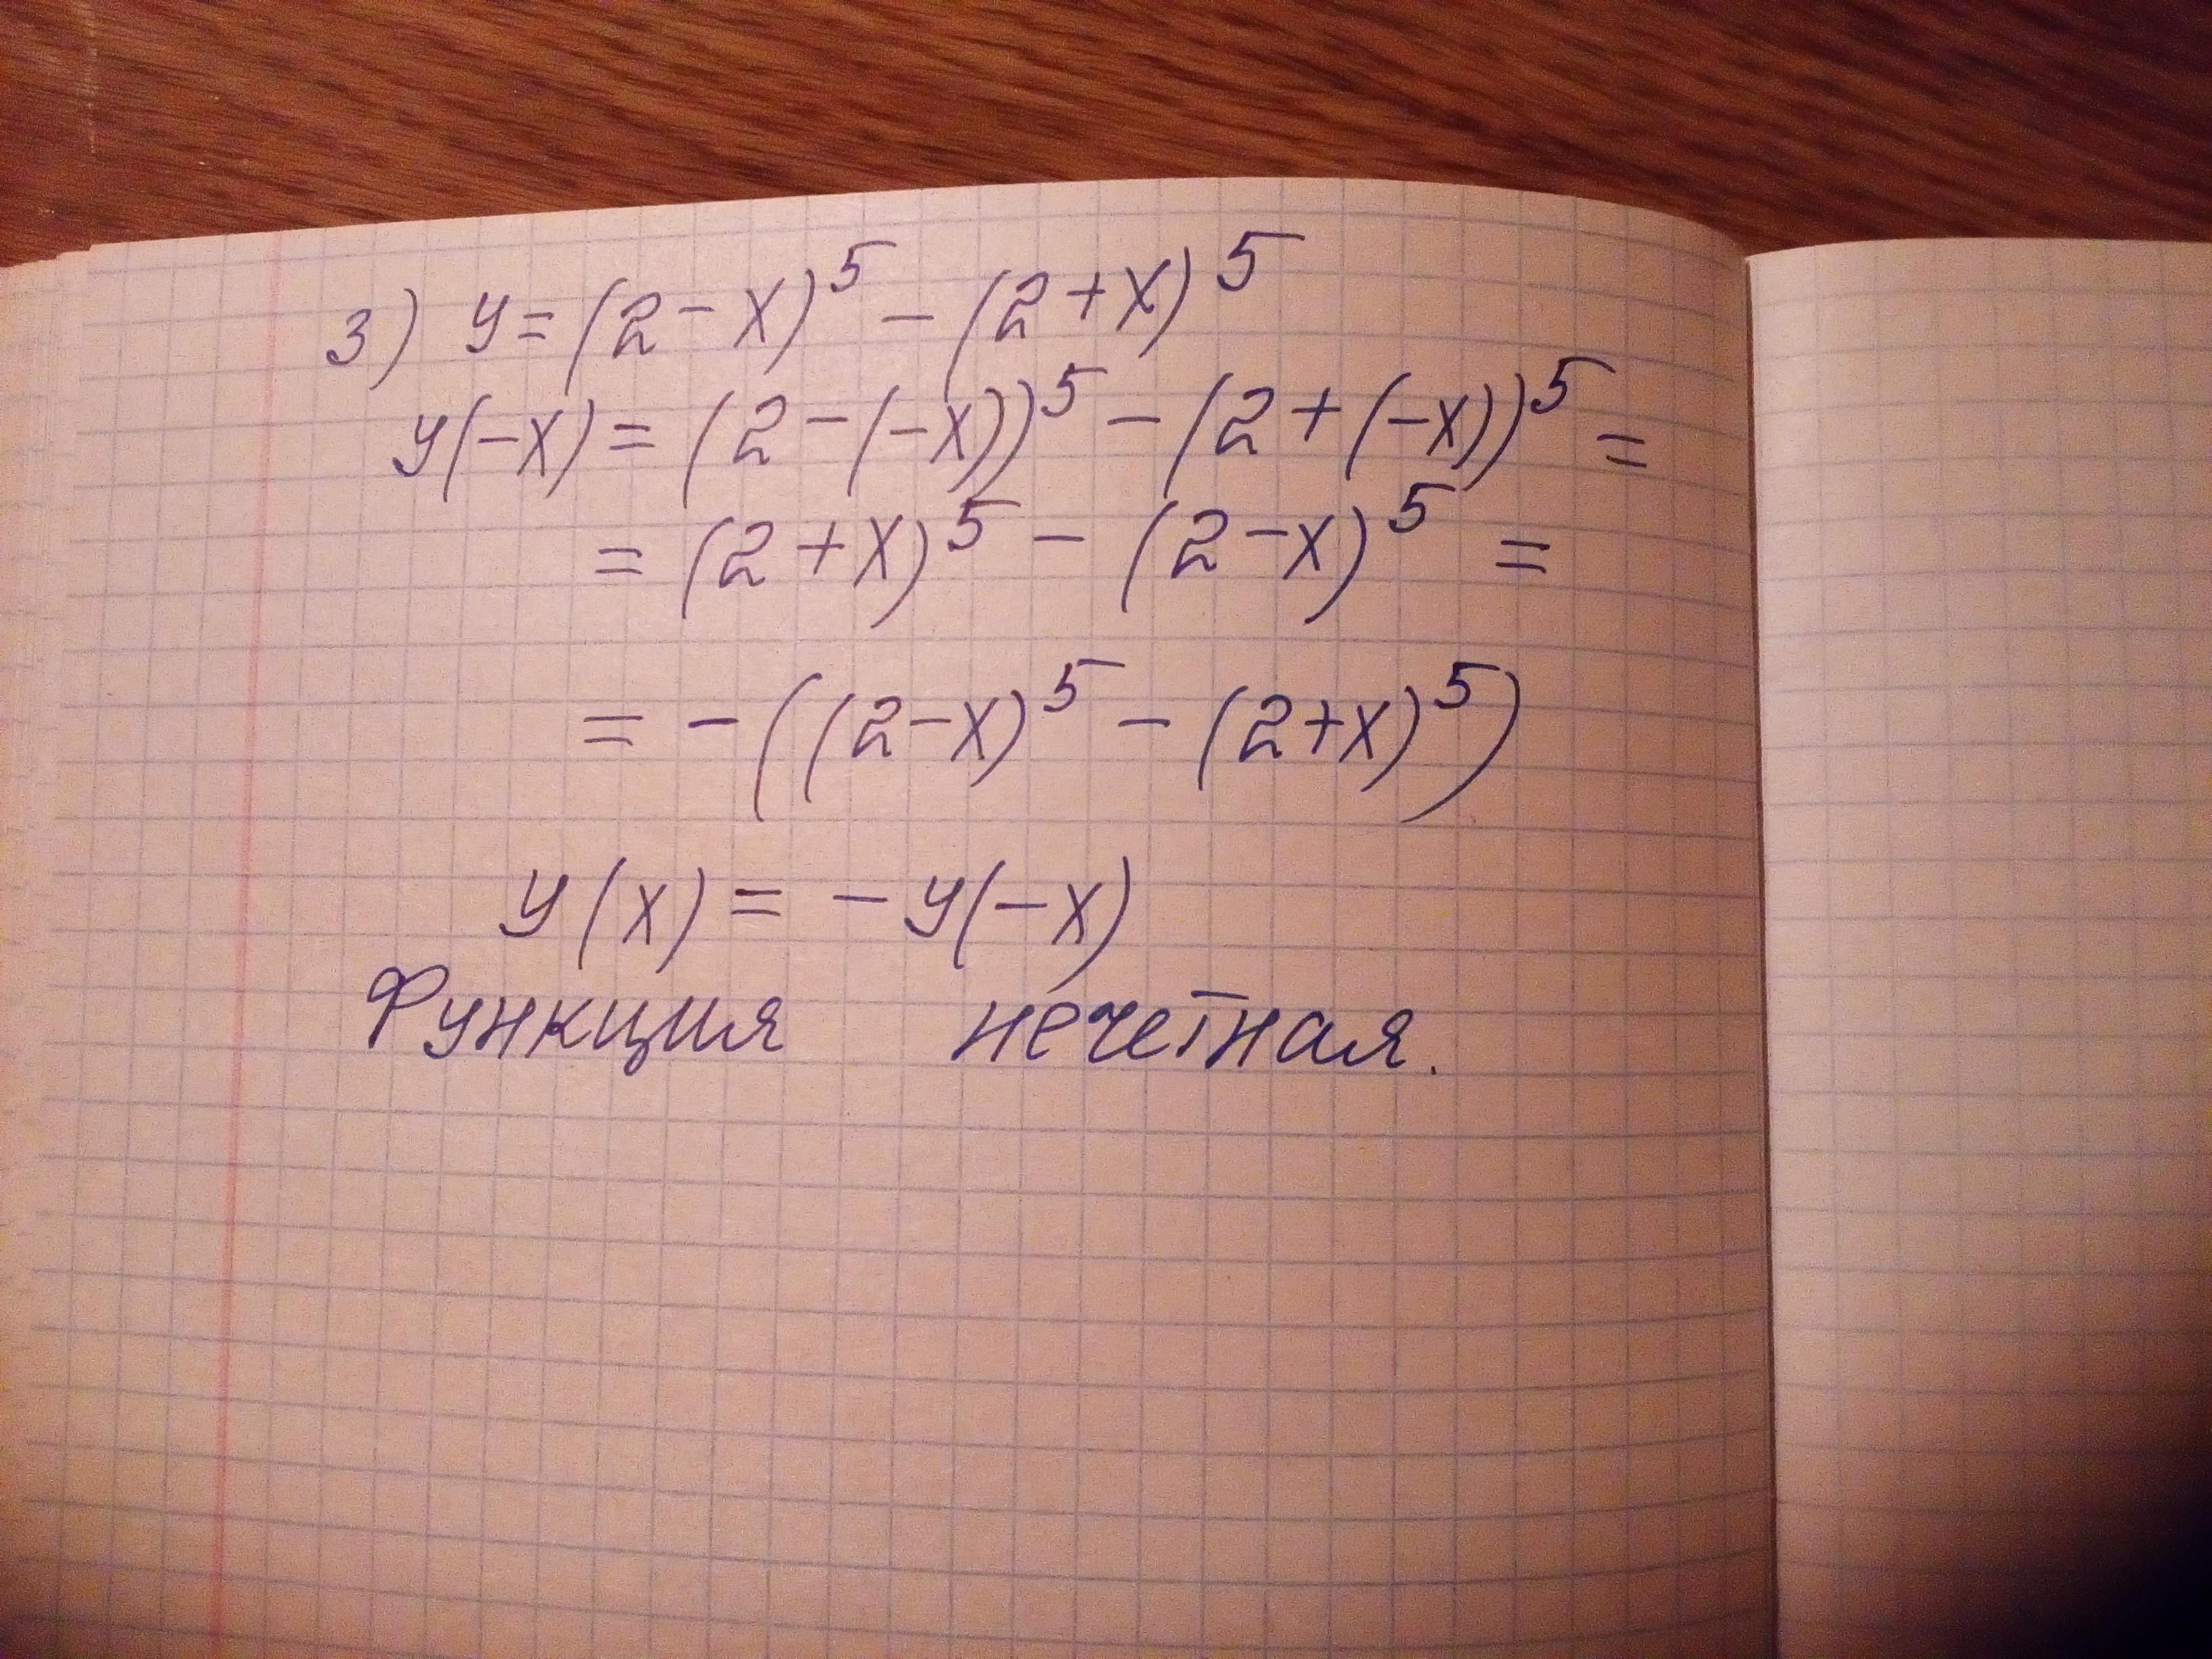 3) y = (2 - x)⁵ - (2 + x)⁵
y(-x) = (2 - (-x))⁵ - (2 + (-x))⁵ =
= (2 + x)⁵ - (2 - x)⁵ =
= - ((2 - x)⁵ - (2 + x)⁵)
y(x) = - y(-x)
Функция нечетная.